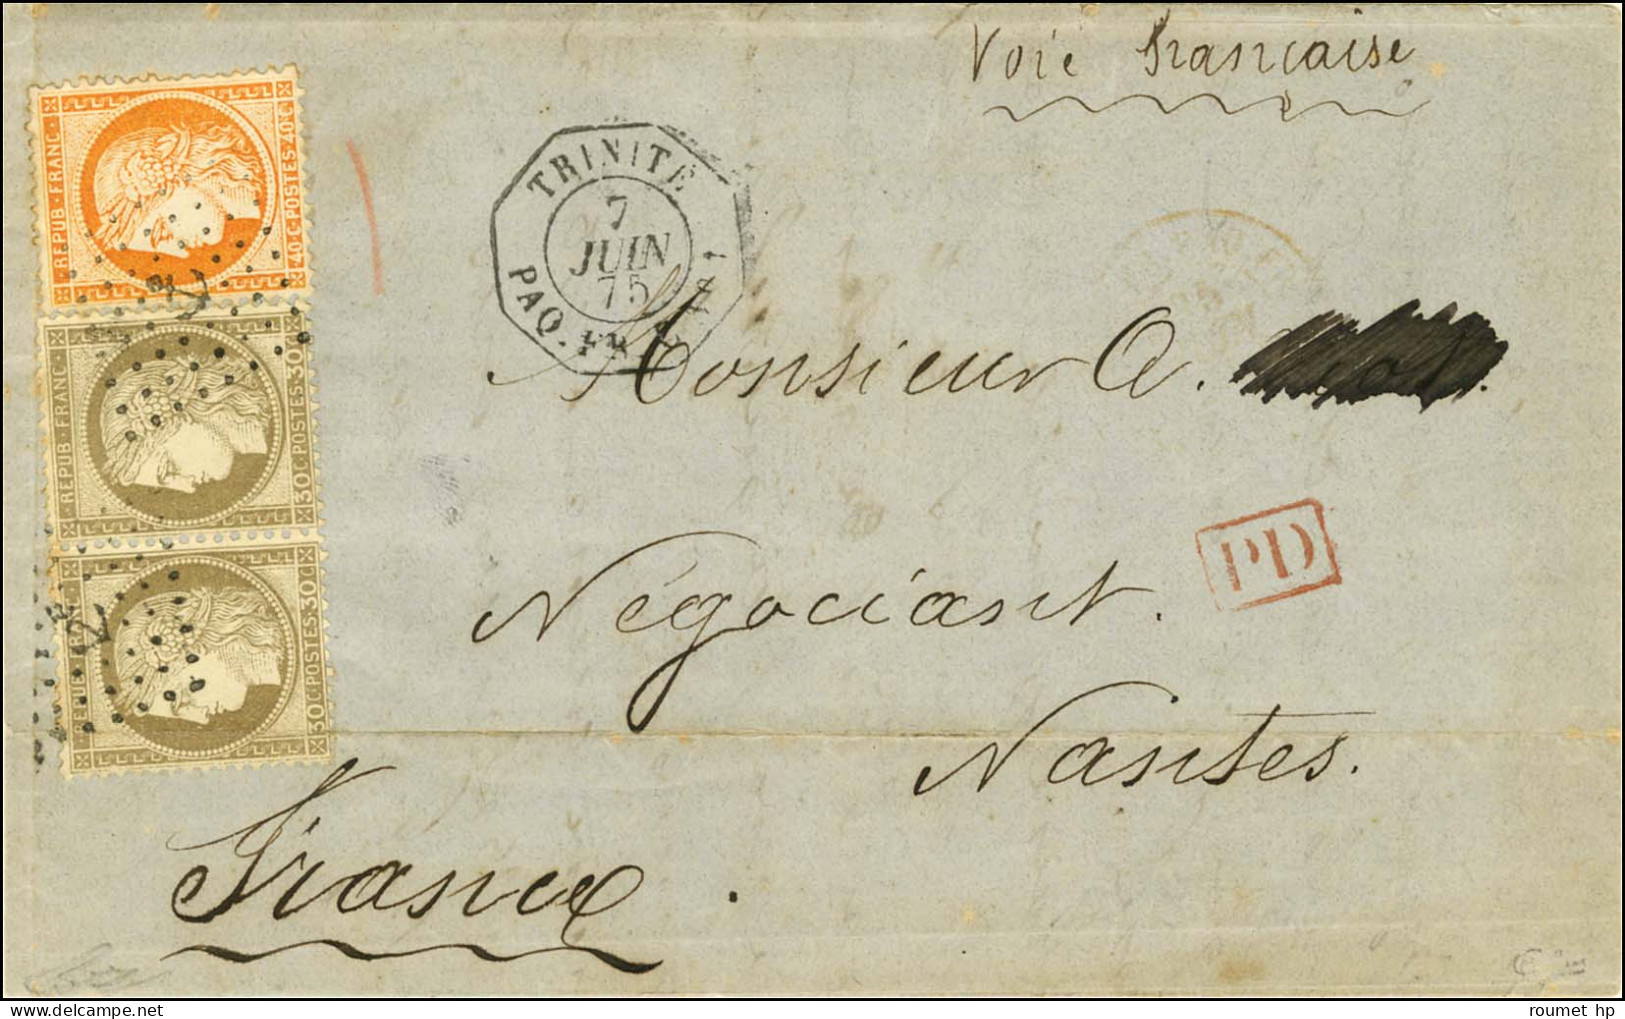 Voie Française
REPUB · FRANC ·
40 · C · POSTES · 40 · C
TRINITÉ
7
JUIN
75
PAQ. FR.
REPUB · FRANC ·
30C · POSTES · 30C
Monsieur A.
PD
Négociant.
REPUB · FRANC
30C · POSTES · 30C
Nantes.
France.
roumet hp